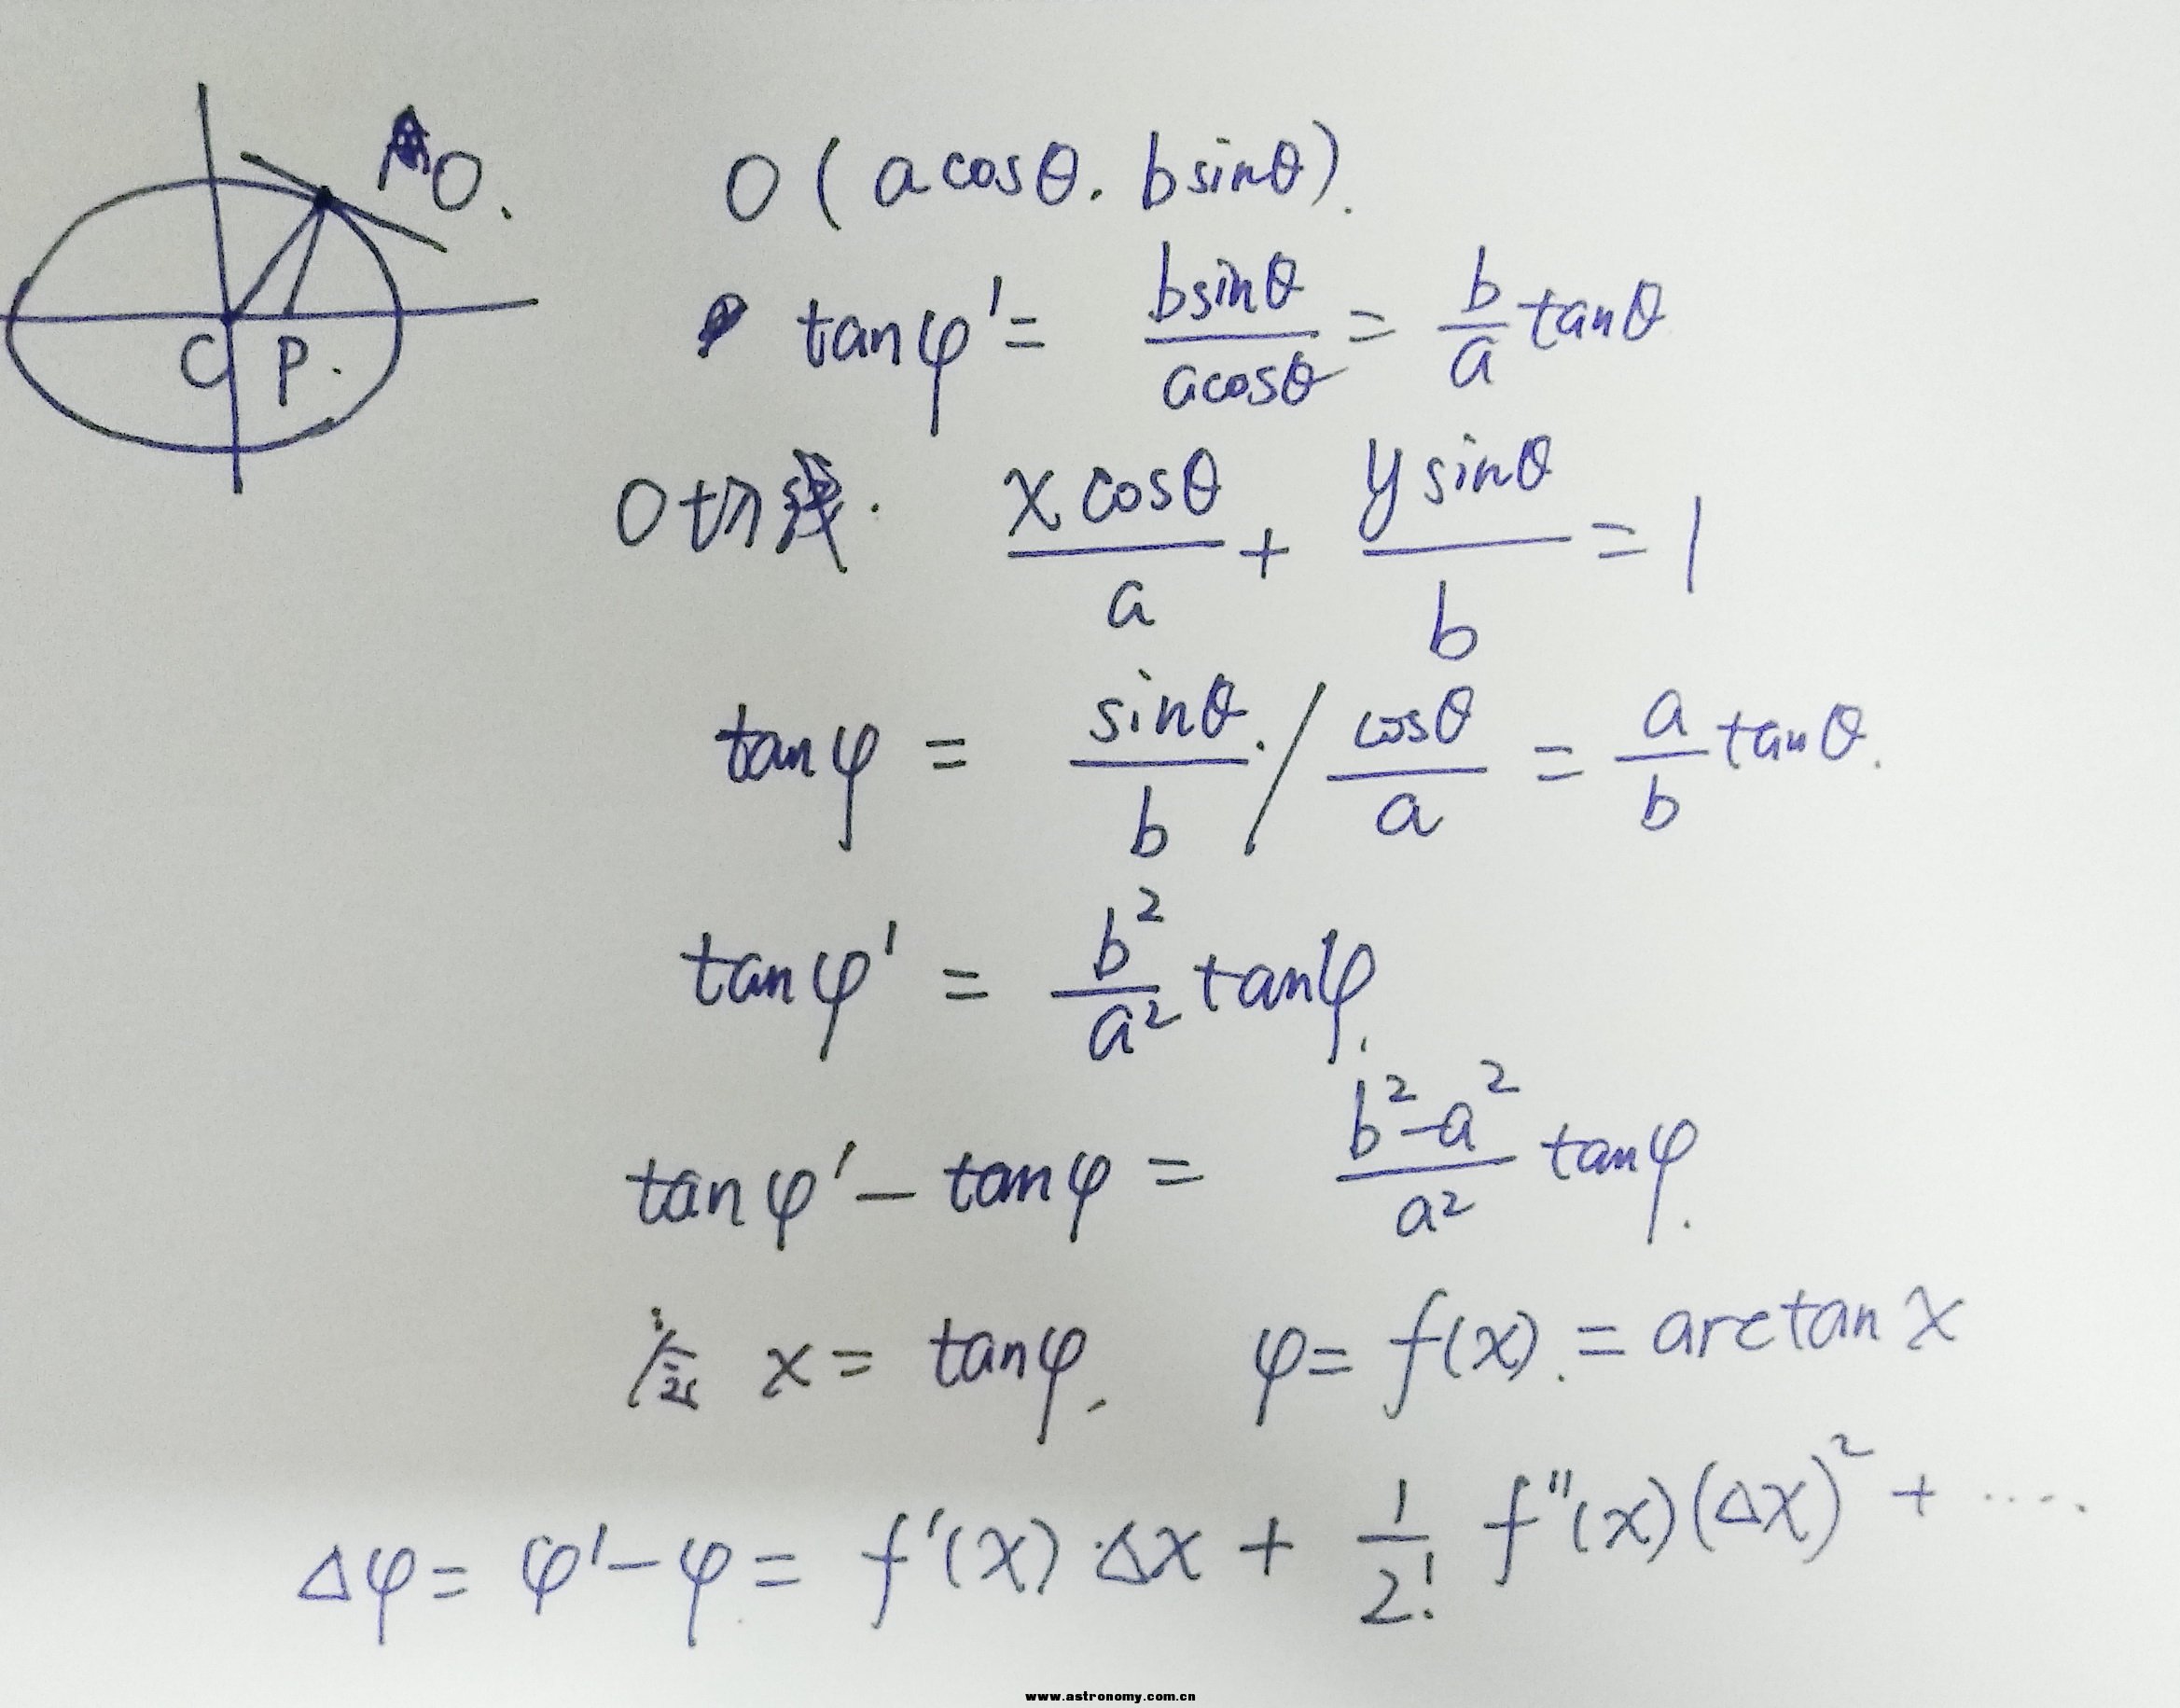 O.
C P.
O (a cosθ. b sinθ).
tanφ' = bsinθ / acosθ = b/a tanθ
O切线. x cosθ / a + y sinθ / b = 1
tanφ = sinθ / b / cosθ / a = a/b tanθ.
tanφ' = b²/a² tanφ.
tanφ' - tanφ = b²-a² / a² tanφ.
令 x = tanφ. φ = f(x). = arctan x
Δφ = φ' - φ = f'(x)·Δx + 1/2! f''(x)(Δx)² + ·····
www.astronomy.com.cn